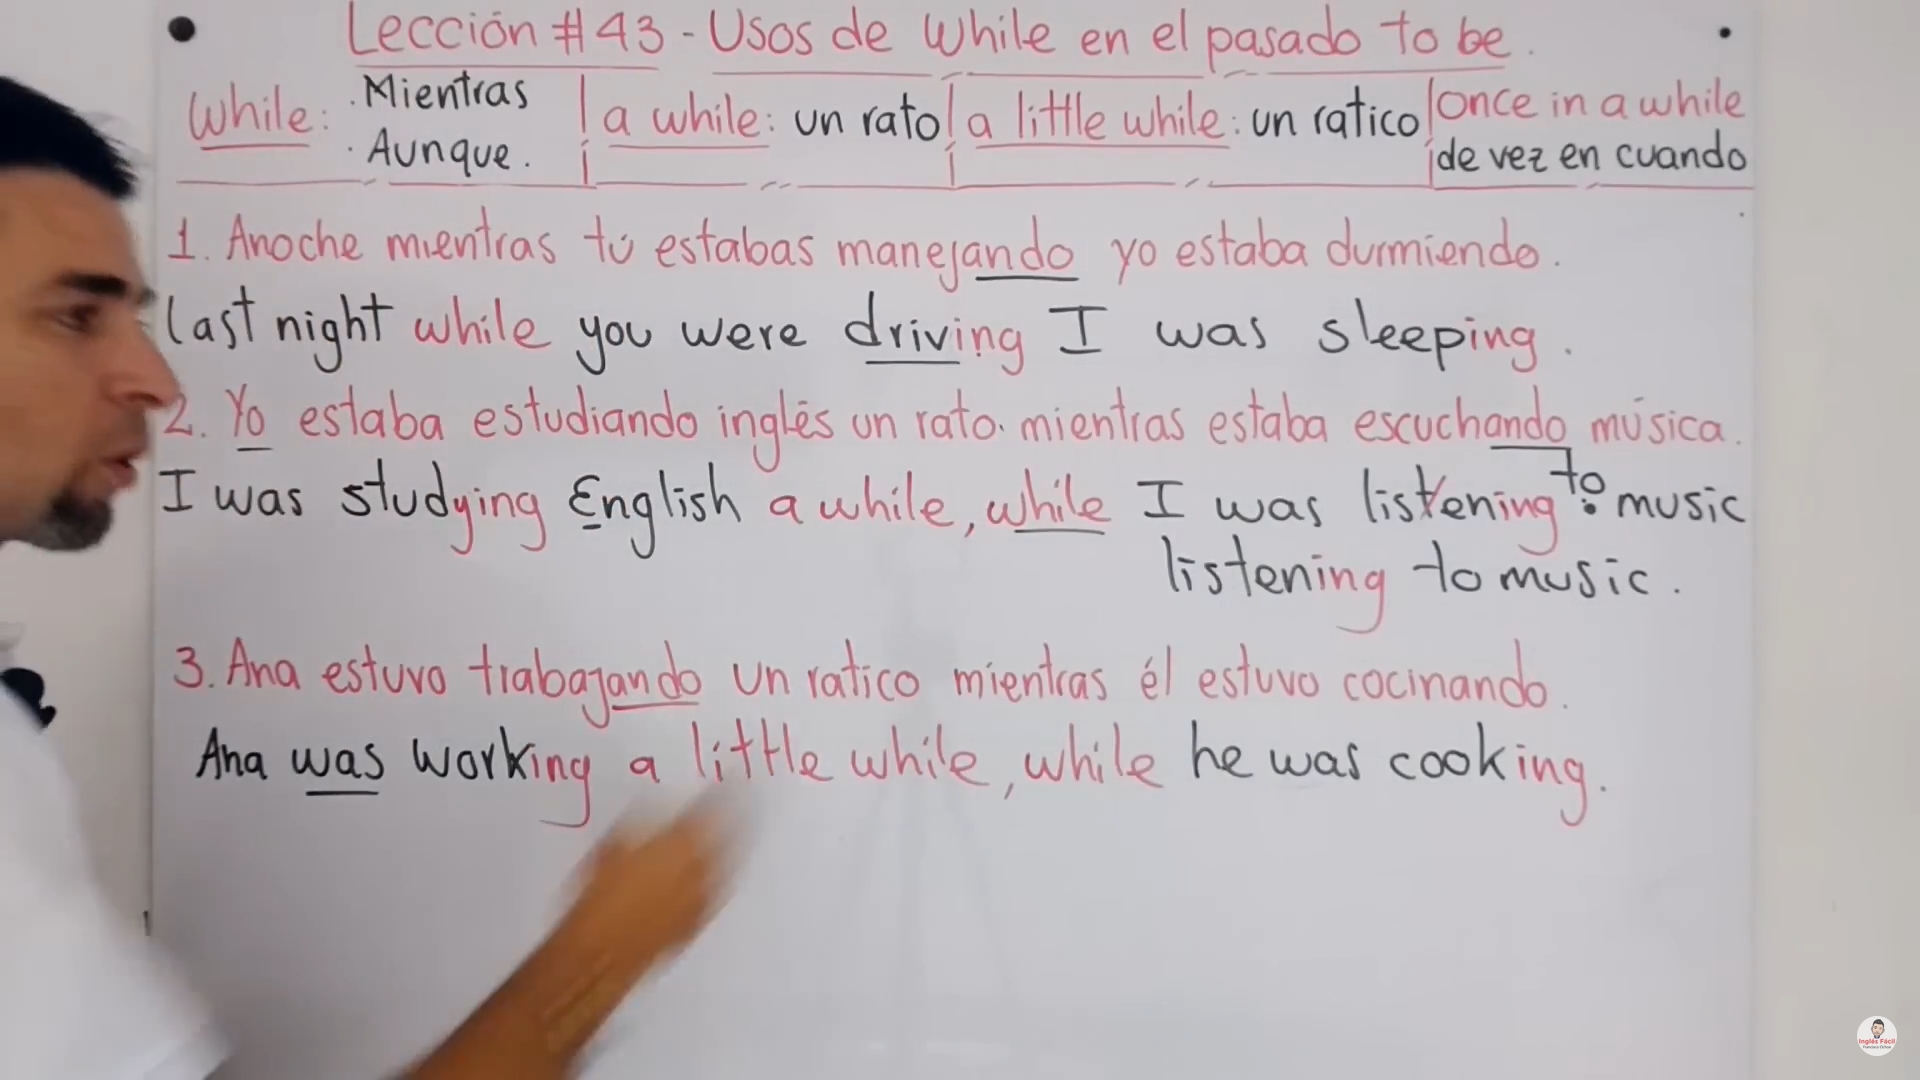 Lección #43 - Usos de While en el pasado to be.
While: · Mientras
· Aunque.
a while: un rato
a little while: un ratico
once in a while
de vez en cuando
1. Anoche mientras tú estabas manejando yo estaba durmiendo.
last night while you were driving I was sleeping.
2. Yo estaba estudiando inglés un rato. mientras estaba escuchando música.
I was studying English a while, while I was listening to music
listening to music.
3. Ana estuvo trabajando un ratico mientras él estuvo cocinando.
Ana was working a little while, while he was cooking.
Inglés Fácil